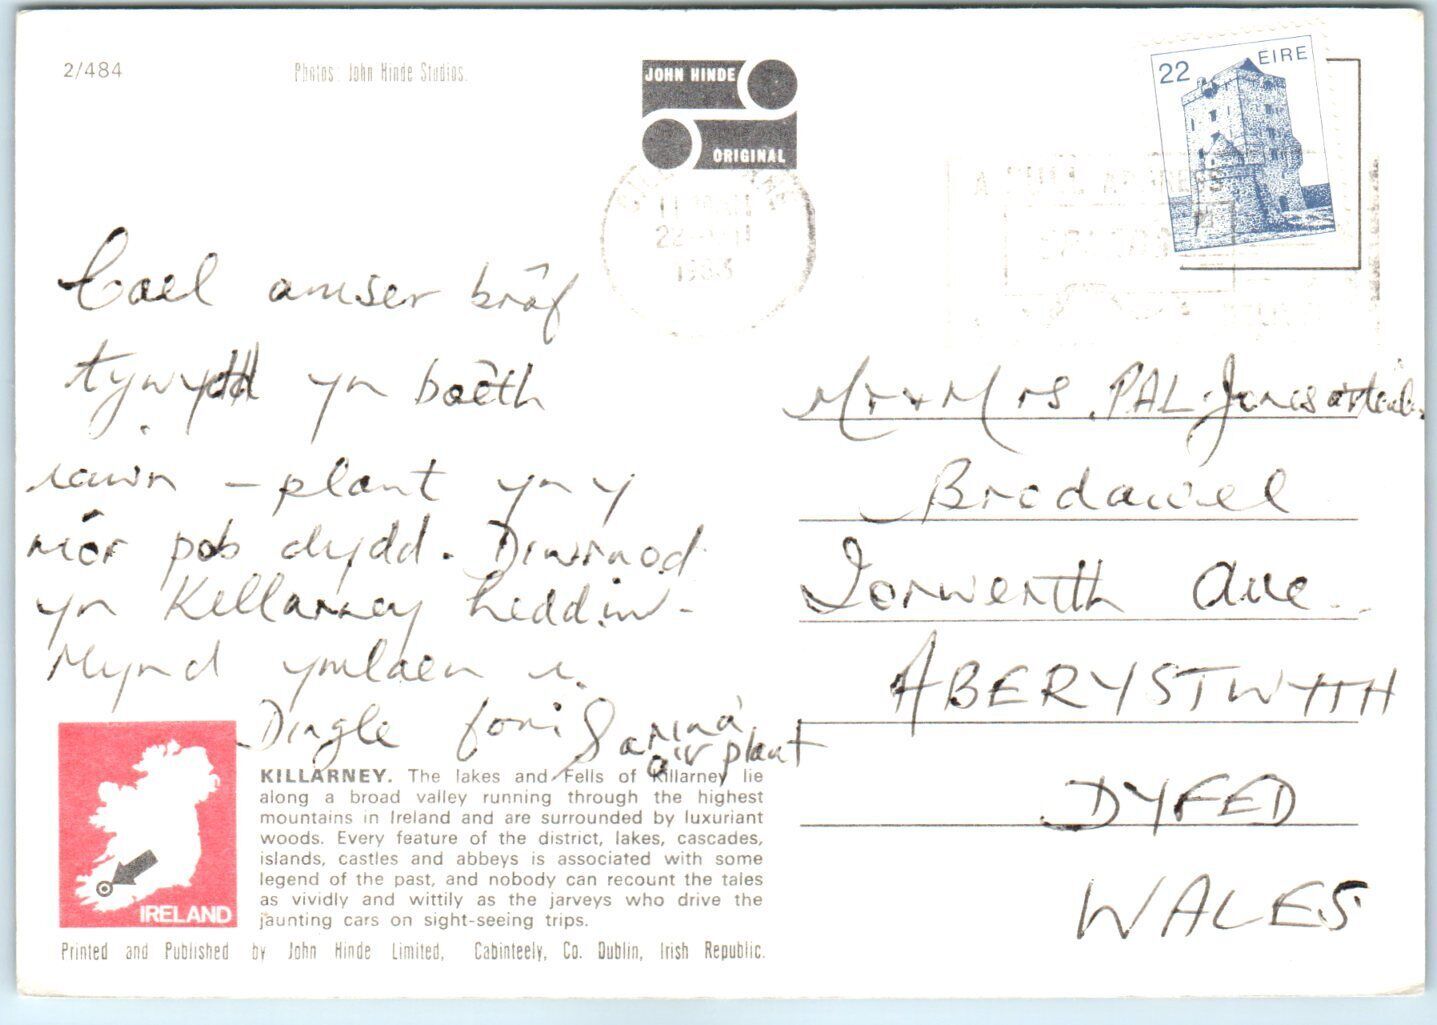 2/484
Photos: John Hinde Studios.
JOHN HINDE
ORIGINAL
22
EIRE
A FULL ADDRESS
Cael amser brâf
tywydd yn boeth
iawn - plant yn y
môr pob dydd. Diwrnod
yn Killarney heddiw -
Mynd ymlaen i
Dingle fori
a'r plant
Mr & Mrs. PAL Jones a'r teulu
Brodawel
Iorwerth Ave
ABERYSTWYTH
DYFED
WALES
IRELAND
KILLARNEY. The lakes and Fells of Killarney lie
along a broad valley running through the highest
mountains in Ireland and are surrounded by luxuriant
woods. Every feature of the district, lakes, cascades,
islands, castles and abbeys is associated with some
legend of the past, and nobody can recount the tales
as vividly and wittily as the jarveys who drive the
jaunting cars on sight-seeing trips.
Printed and Published by John Hinde Limited, Cabinteely, Co. Dublin, Irish Republic.